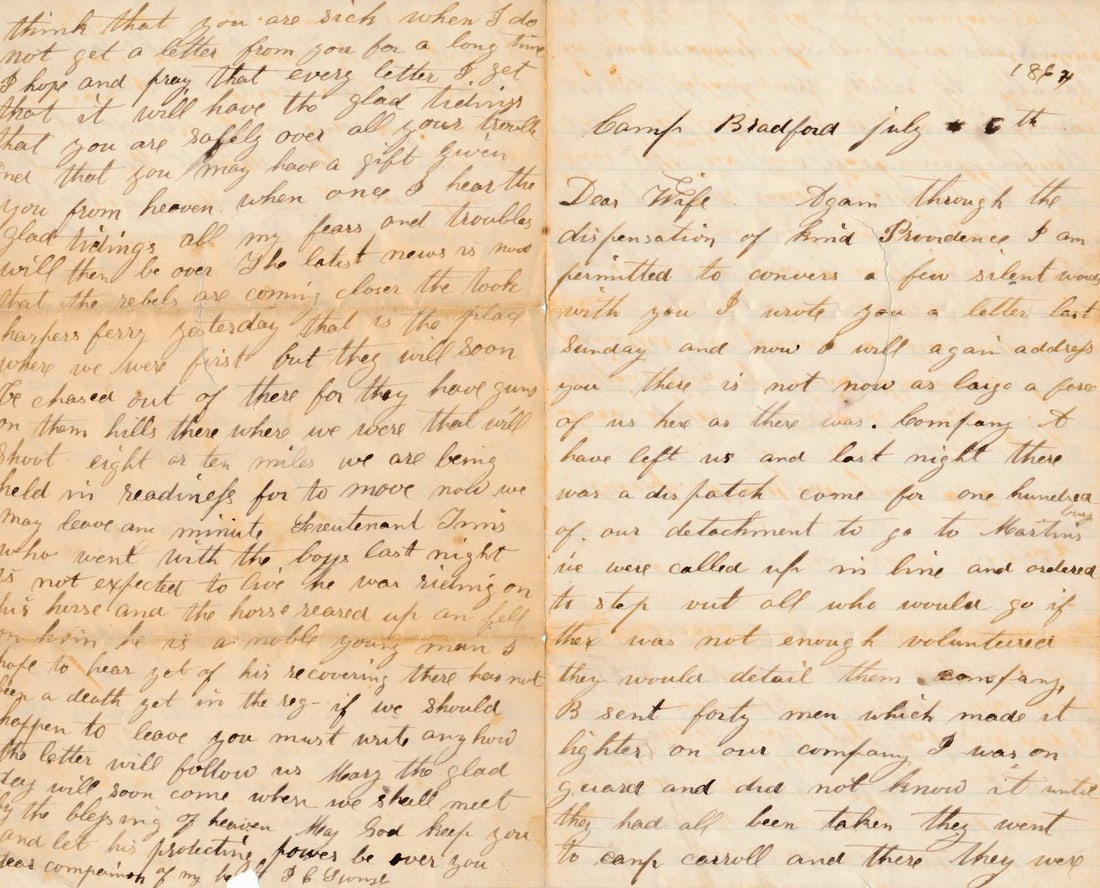 1864
Camp Bradford july th
Dear Wife Again through the
dispensation of kind Providence I am
permitted to convers a few silent words
with you I wrote you a letter last
Sunday and now I will again address
you there is not now as large a forse
of us here as there was. Company A
have left us and last night there
was a dispatch come for one hundred
of our detachment to go to Martins
burg
we were called up in line and ordered
to step out all who would go if
ther was not enough volunteered
they would detail them company
B sent forty men which made it
lighter on our company I was on
guard and did not know it until
they had all been taken they went
to camp carroll and there they were
think that you are sick when I do
not get a letter from you for a long time
I hope and pray that every letter I get
that it will have the glad tidings
that you are safely over all your trouble
and that you may have a gift given
you from heaven when once I hear the
glad tidings all my fears and troubles
will then be over The latest news is now
that the rebels are coming closer the took
harpers ferry yesterday that is the place
where we were first but they will soon
be chased out of there for they have guns
on them hills there where we were that will
shoot eight or ten miles we are being
held in readiness for to move now we
may leave any minute Lieutenant
who went with the boys last night
is not expected to live he was rideing on
his horse and the horse reared up an fell
on him he is a noble young man I
hope to hear yet of his recovering there has not
been a death yet in the reg- if we should
happen to leave you must write anyhow
the letter will follow us Mary the glad
day will soon come when we shall meet
by the blessing of heaven May God keep you
and let his protecting power be over you
dear companion of my